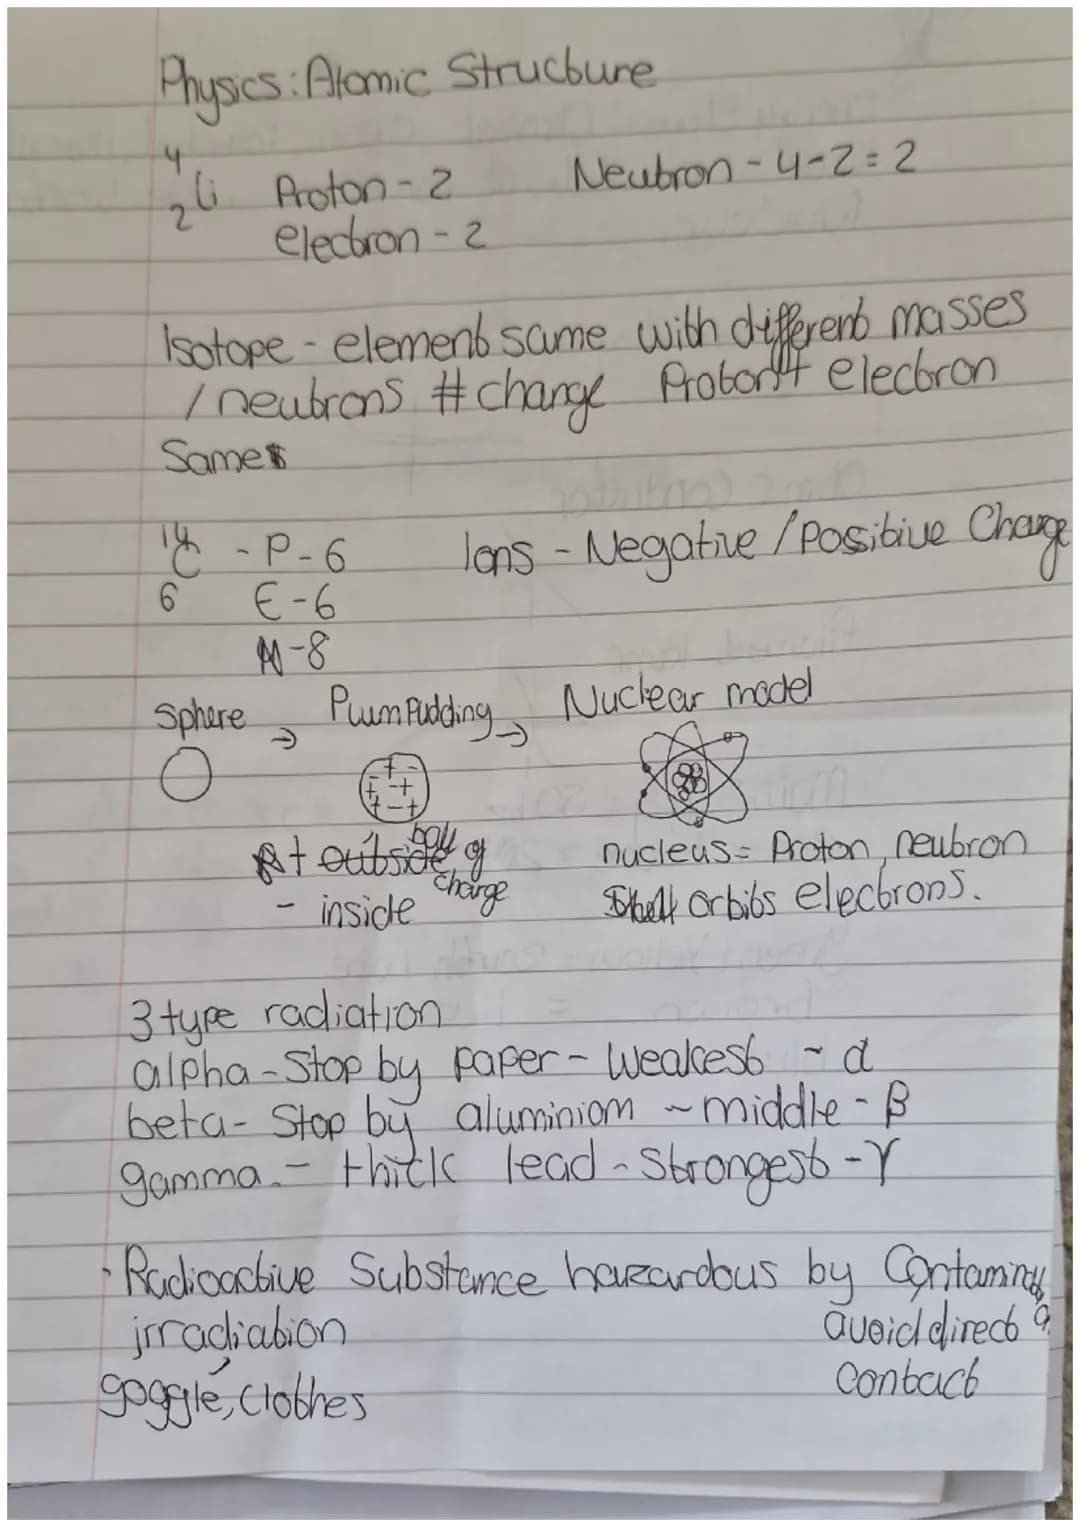 Physics: Atomic Structure
4
2 Li Proton - 2 Neutron - 4-2=2
electron - 2
Isotope - element same with different masses
/ neutrons # change Proton + electron
Same
14
C - P - 6 Ions - Negative / Positive Charge
6 E - 6
N - 8
Sphere → Plum Pudding → Nuclear model
+ - + - + + - +
+ outside ball of charge nucleus = Proton, neutron
- inside Shell orbits electrons.
3 type radiation
alpha - Stop by paper - Weakest - α
beta - Stop by aluminiom - middle - β
gamma - thick lead - Strongest - γ
· Radioactive Substance hazardous by
irradiation avoid direct
goggle, clothes contact